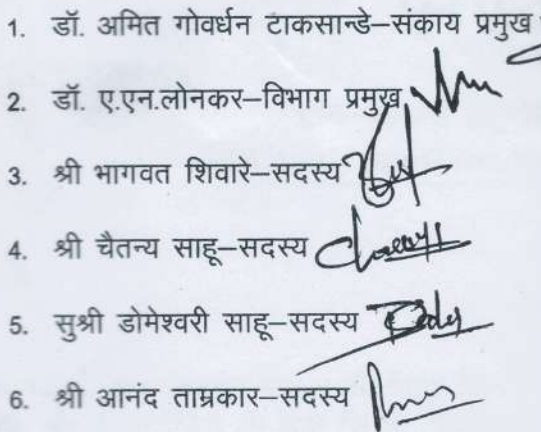 1. डॉ. अमित गोवर्धन टाकसान्डे–संकाय प्रमुख
2. डॉ. ए.एन.लोनकर–विभाग प्रमुख
3. श्री भागवत शिवारे–सदस्य
4. श्री चैतन्य साहू–सदस्य
5. सुश्री डोमेश्वरी साहू–सदस्य
6. श्री आनंद ताम्रकार–सदस्य